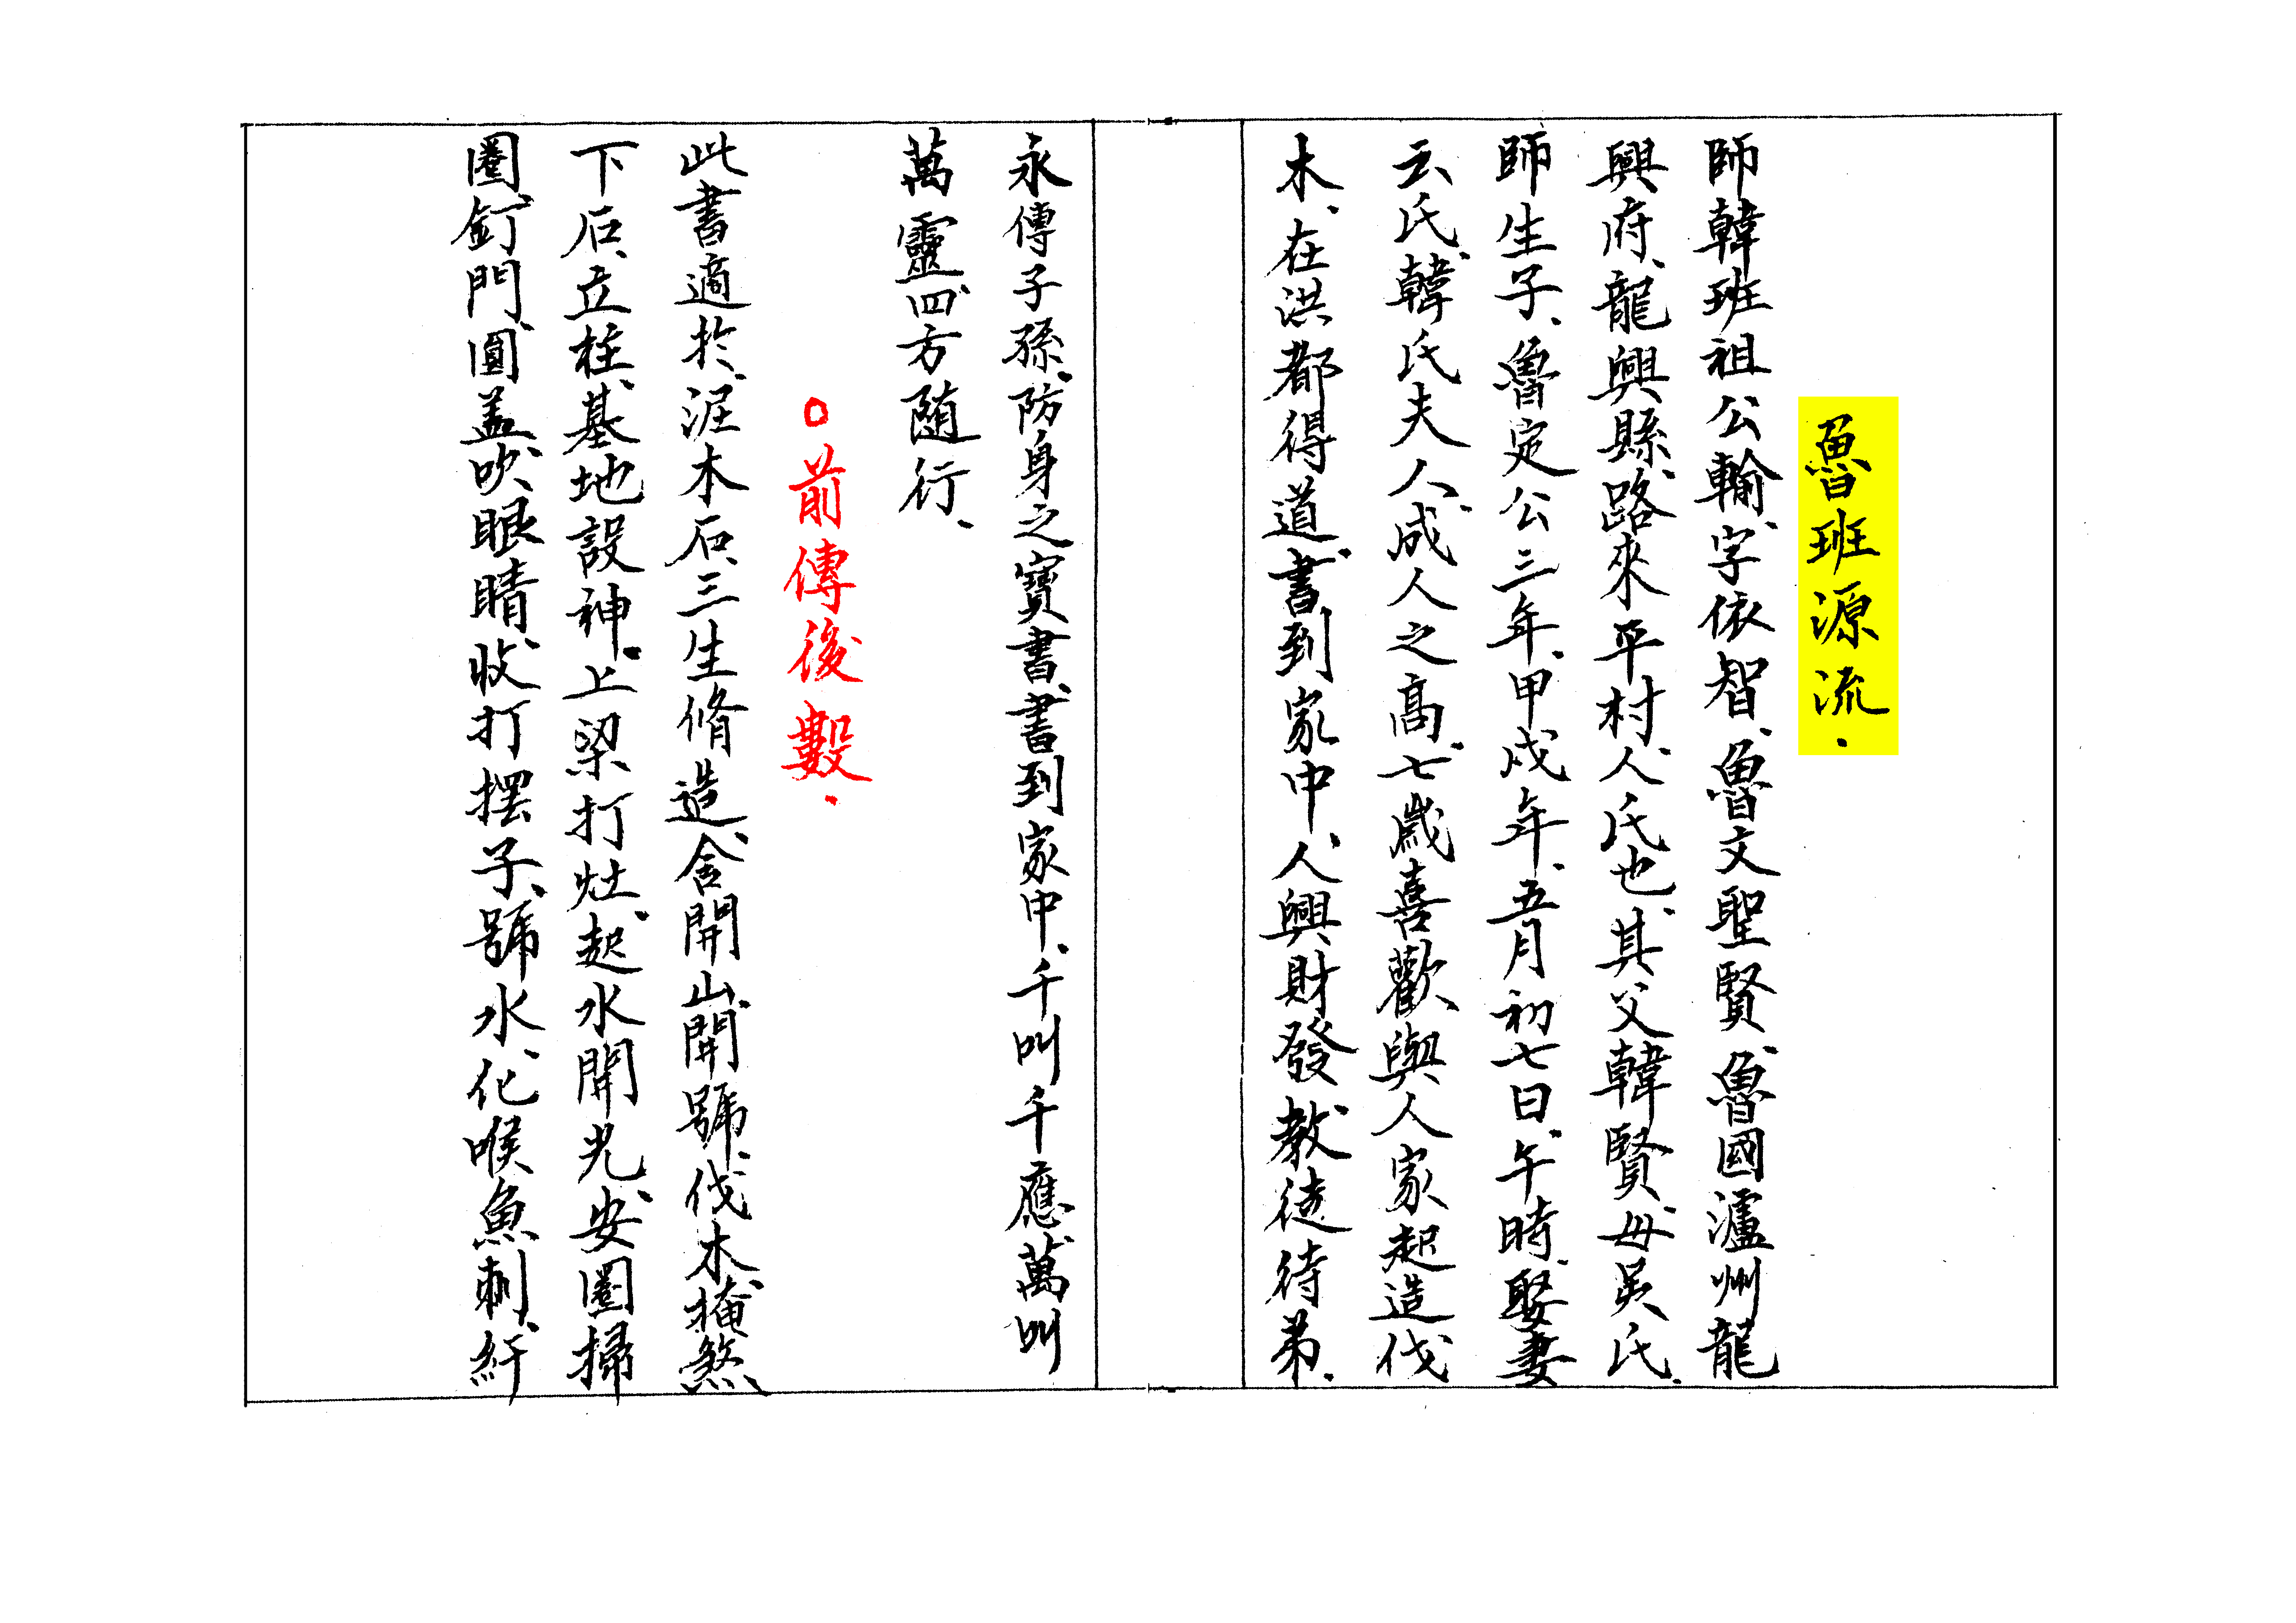 魯班源流.
師韓班祖公輸、字依智、魯文聖賢、魯國瀘州龍
興府、龍興縣、路來平村、人氏也、其父韓賢、毋吴氏.
師生子、魯定公三年、甲戌年、五月初七日、午時、娶妻
云氏、韓氏夫人、成人之高、七歲喜歡與人家起造伐
木、在洪都得道、書到家中、人興財發、教徒待弟.
永傳子孫、防身之寶書、書到家中、千叫千應、萬叫
萬靈、四方随行、
○前傳後數.
此書適扵、泥木石、三生脩造、舍開山、開號、伐木、掩煞、
下石、立柱、基地設神、上梁打灶、起水開光、安圈掃
圈、釘門、圓盖、吹眼睛、收打摆子、號水、化喉魚刺、纤